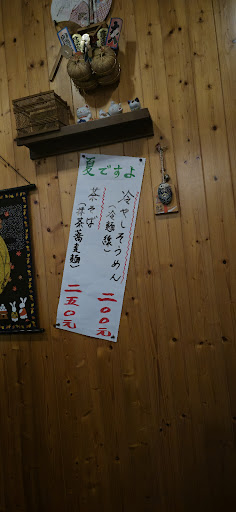 夏ですよ
冷やしそうめん
(冷麺線)
二〇〇元
茶そば
(抹茶蕎麦麺)
二五〇元